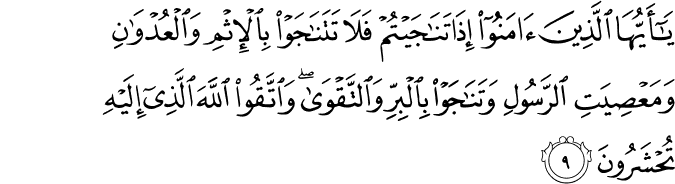 يَـٰٓأَيُّهَا ٱلَّذِينَ ءَامَنُوٓا۟ إِذَا تَنَـٰجَيْتُمْ فَلَا تَتَنَـٰجَوْا۟ بِٱلْإِثْمِ وَٱلْعُدْوَٰنِ
وَمَعْصِيَتِ ٱلرَّسُولِ وَتَنَـٰجَوْا۟ بِٱلْبِرِّ وَٱلتَّقْوَىٰ ۖ وَٱتَّقُوا۟ ٱللَّهَ ٱلَّذِىٓ إِلَيْهِ
تُحْشَرُونَ ٩